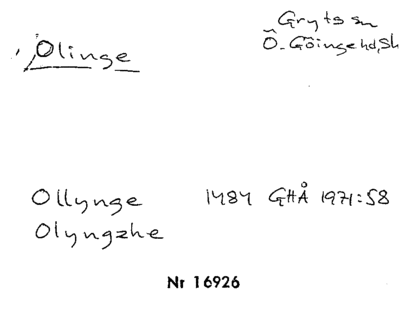 Gryts sn
Olinge Ö. Göinge hd, Sk
Ollynge 1484 GHÅ 1971:58
Olyngzhe
Nr 16926